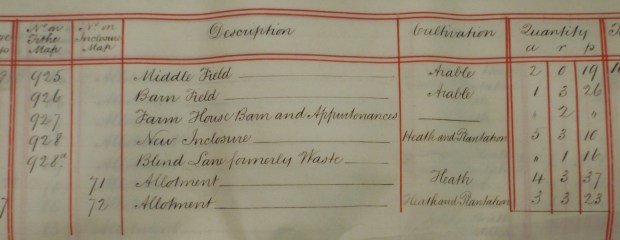 No. in Tithe Map No. in Inclosure Map Description Cultivation Quantity
a r p
925 Middle Field Arable 2 0 19
926 Barn Field Arable 1 3 26
927 Farm House Barn and Appurtenances " 2 "
928 New Inclosure Heath and Plantation 5 3 10
928a Blend Lane formerly Waste " 1 16
71 Allotment Heath 4 3 37
72 Allotment Heath and Plantation 3 3 23